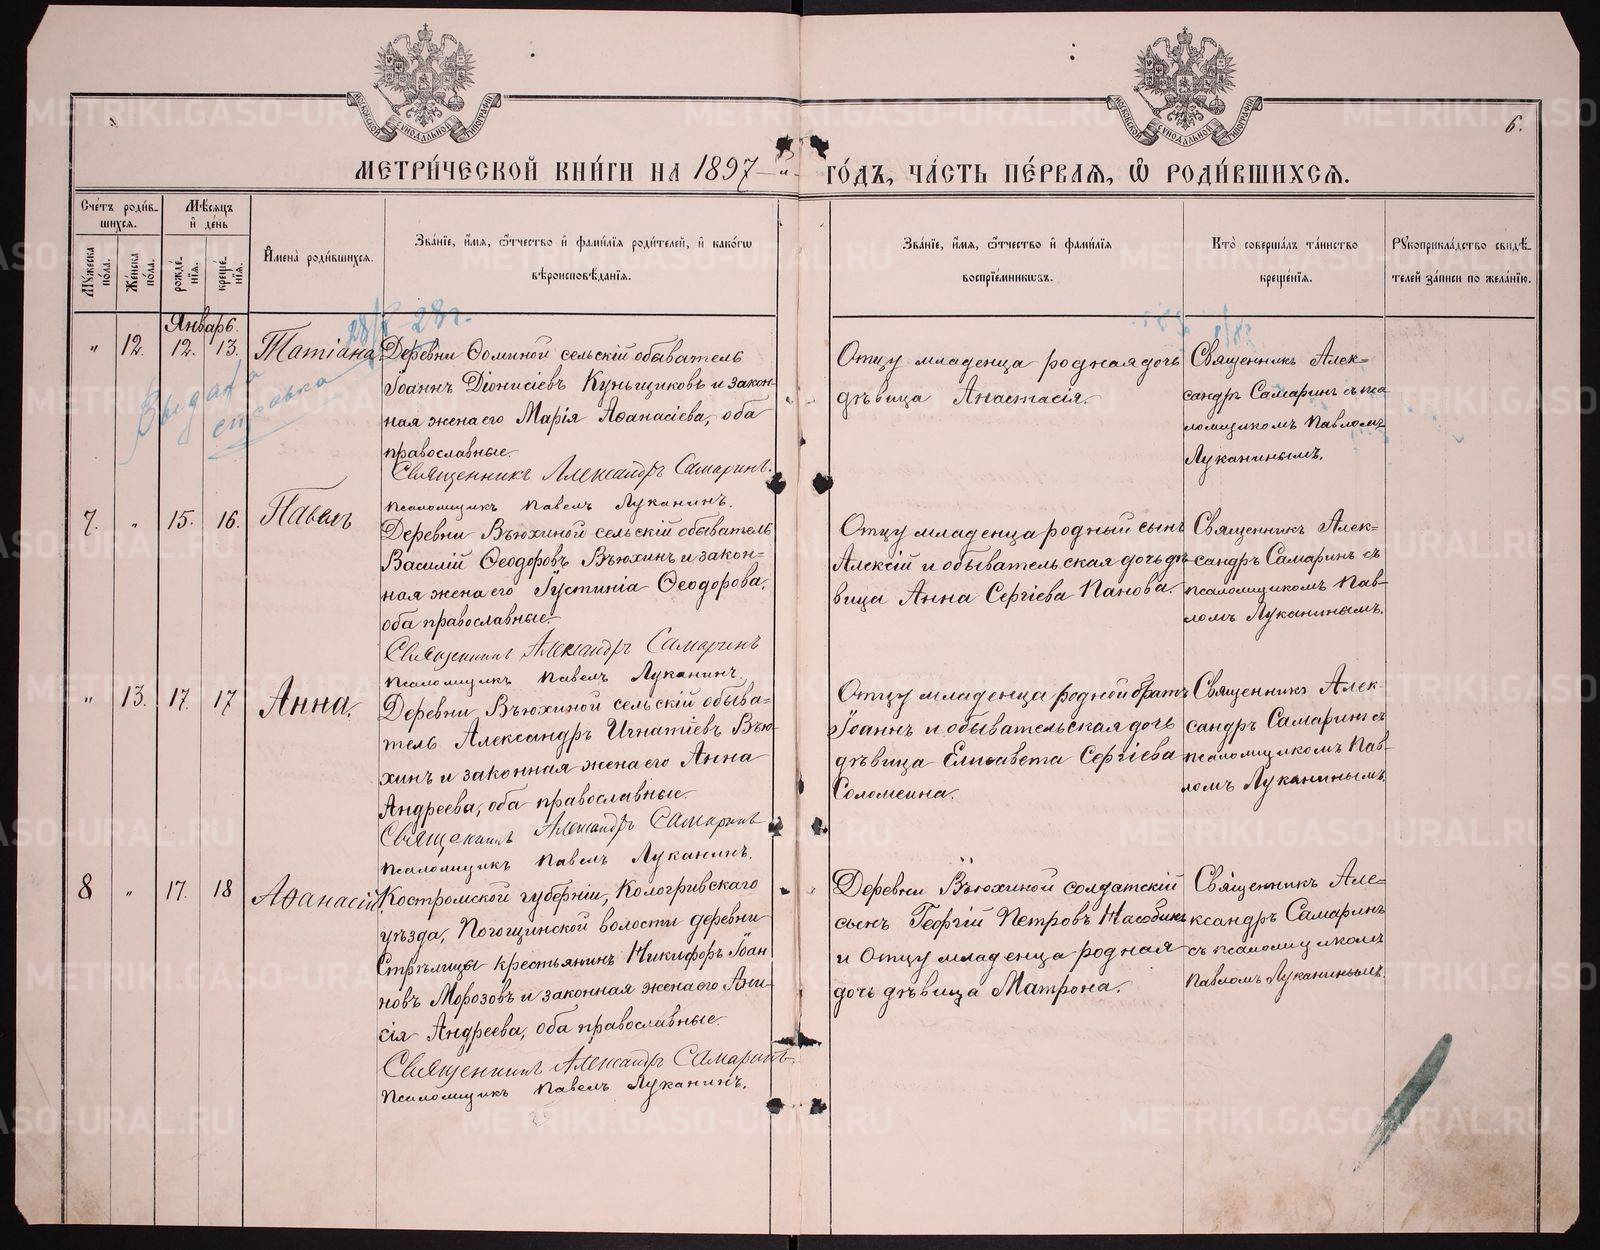 МОСКОВСКОЙ СУНОДАЛЬНОЙ ТИПОГРАФІИ
МОСКОВСКОЙ СУНОДАЛЬНОЙ ТИПОГРАФІИ
6.
МЕТРИ́ЧЕСКОЙ КНИ́ГИ НА 1897 ГО́ДЪ, ЧА́СТЬ ПЕ́РВАѦ, Ѡ҆ РОДИ́ВШИХСѦ.
Сче́тъ роди́в-
шихсѧ.
Мꙋ́жеска
по́ла.
Же́нска
по́ла.
Мѣ́сѧцъ
и҆ де́нь
рожде́-
нїѧ.
креще́-
нїѧ.
И҆мена̀ роди́вшихсѧ.
Зва́нїе, и҆́мѧ, ѻ҆́тчество и҆ фами́лїѧ роди́телей, и҆ како́гѡ
вѣроисповѣ́данїѧ.
Зва́нїе, и҆́мѧ, ѻ҆́тчество и҆ фами́лїѧ
воспрїе́мникѡвъ.
Кто̀ соверша́лъ та́инство
креще́нїѧ.
Рꙋкоприкла́дство свидѣ́-
телей за́писи по жела́нїю.
Январь.
28/V 28 г.
Выдана
справка
" 12. 12. 13. Татіана
Деревни Ѳоминой сельскій обыватель
Іоаннъ Діонисіевъ Куньщиковъ и закон-
ная жена его Марія Аѳанасіева, оба
православные.
Священникъ Александръ Самаринъ.
Псаломщикъ Павелъ Луканинъ.
Отцу младенца родная дочь
дѣвица Анастасія.
Священникъ Алек-
сандръ Самаринъ съ пса
ломщикомъ Павломъ
Луканинымъ.
7. " 15. 16. Павелъ
Деревни Вьюхиной сельскій обыватель
Василій Ѳеодоровъ Вьюхинъ и закон-
ная жена его Іустинія Ѳеодорова,
оба православные.
Священникъ Александръ Самаринъ
Псаломщикъ Павелъ Луканинъ.
Отцу младенца родный сынъ
Алексій и обывательская дочь дѣ-
вица Анна Сергіева Панова.
Священникъ Алек-
сандръ Самаринъ съ
псаломщикомъ Пав-
ломъ Луканинымъ.
" 13. 17. 17 Анна.
Деревни Вьюхиной сельскій обыва-
тель Александръ Игнатіевъ Вью-
хинъ и законная жена его Анна
Андреева, оба православные.
Священникъ Александръ Самаринъ
Псаломщикъ Павелъ Луканинъ.
Отцу младенца родной братъ
Іоаннъ и обывательская дочь
дѣвица Елисавета Сергіева
Соломеина.
Священникъ Алек-
сандръ Самаринъ съ
псаломщикомъ Пав-
ломъ Луканинымъ.
8 " 17. 18 Аѳанасій
Костромской губерніи, Кологривскаго
уѣзда, Погощинской волости деревни
Стрѣлицы крестьянинъ Никифоръ Іоан
новъ Морозовъ и законная жена его Ани-
сія Андреева, оба православные.
Священникъ Александръ Самаринъ.
Псаломщикъ Павелъ Луканинъ.
Деревни Вьюхиной солдатскій
сынъ Георгій Петровъ
и Отцу младенца родная
дочь дѣвица Матрона.
Священникъ Але-
ксандръ Самаринъ
съ псаломщикомъ
Павломъ Луканинымъ.